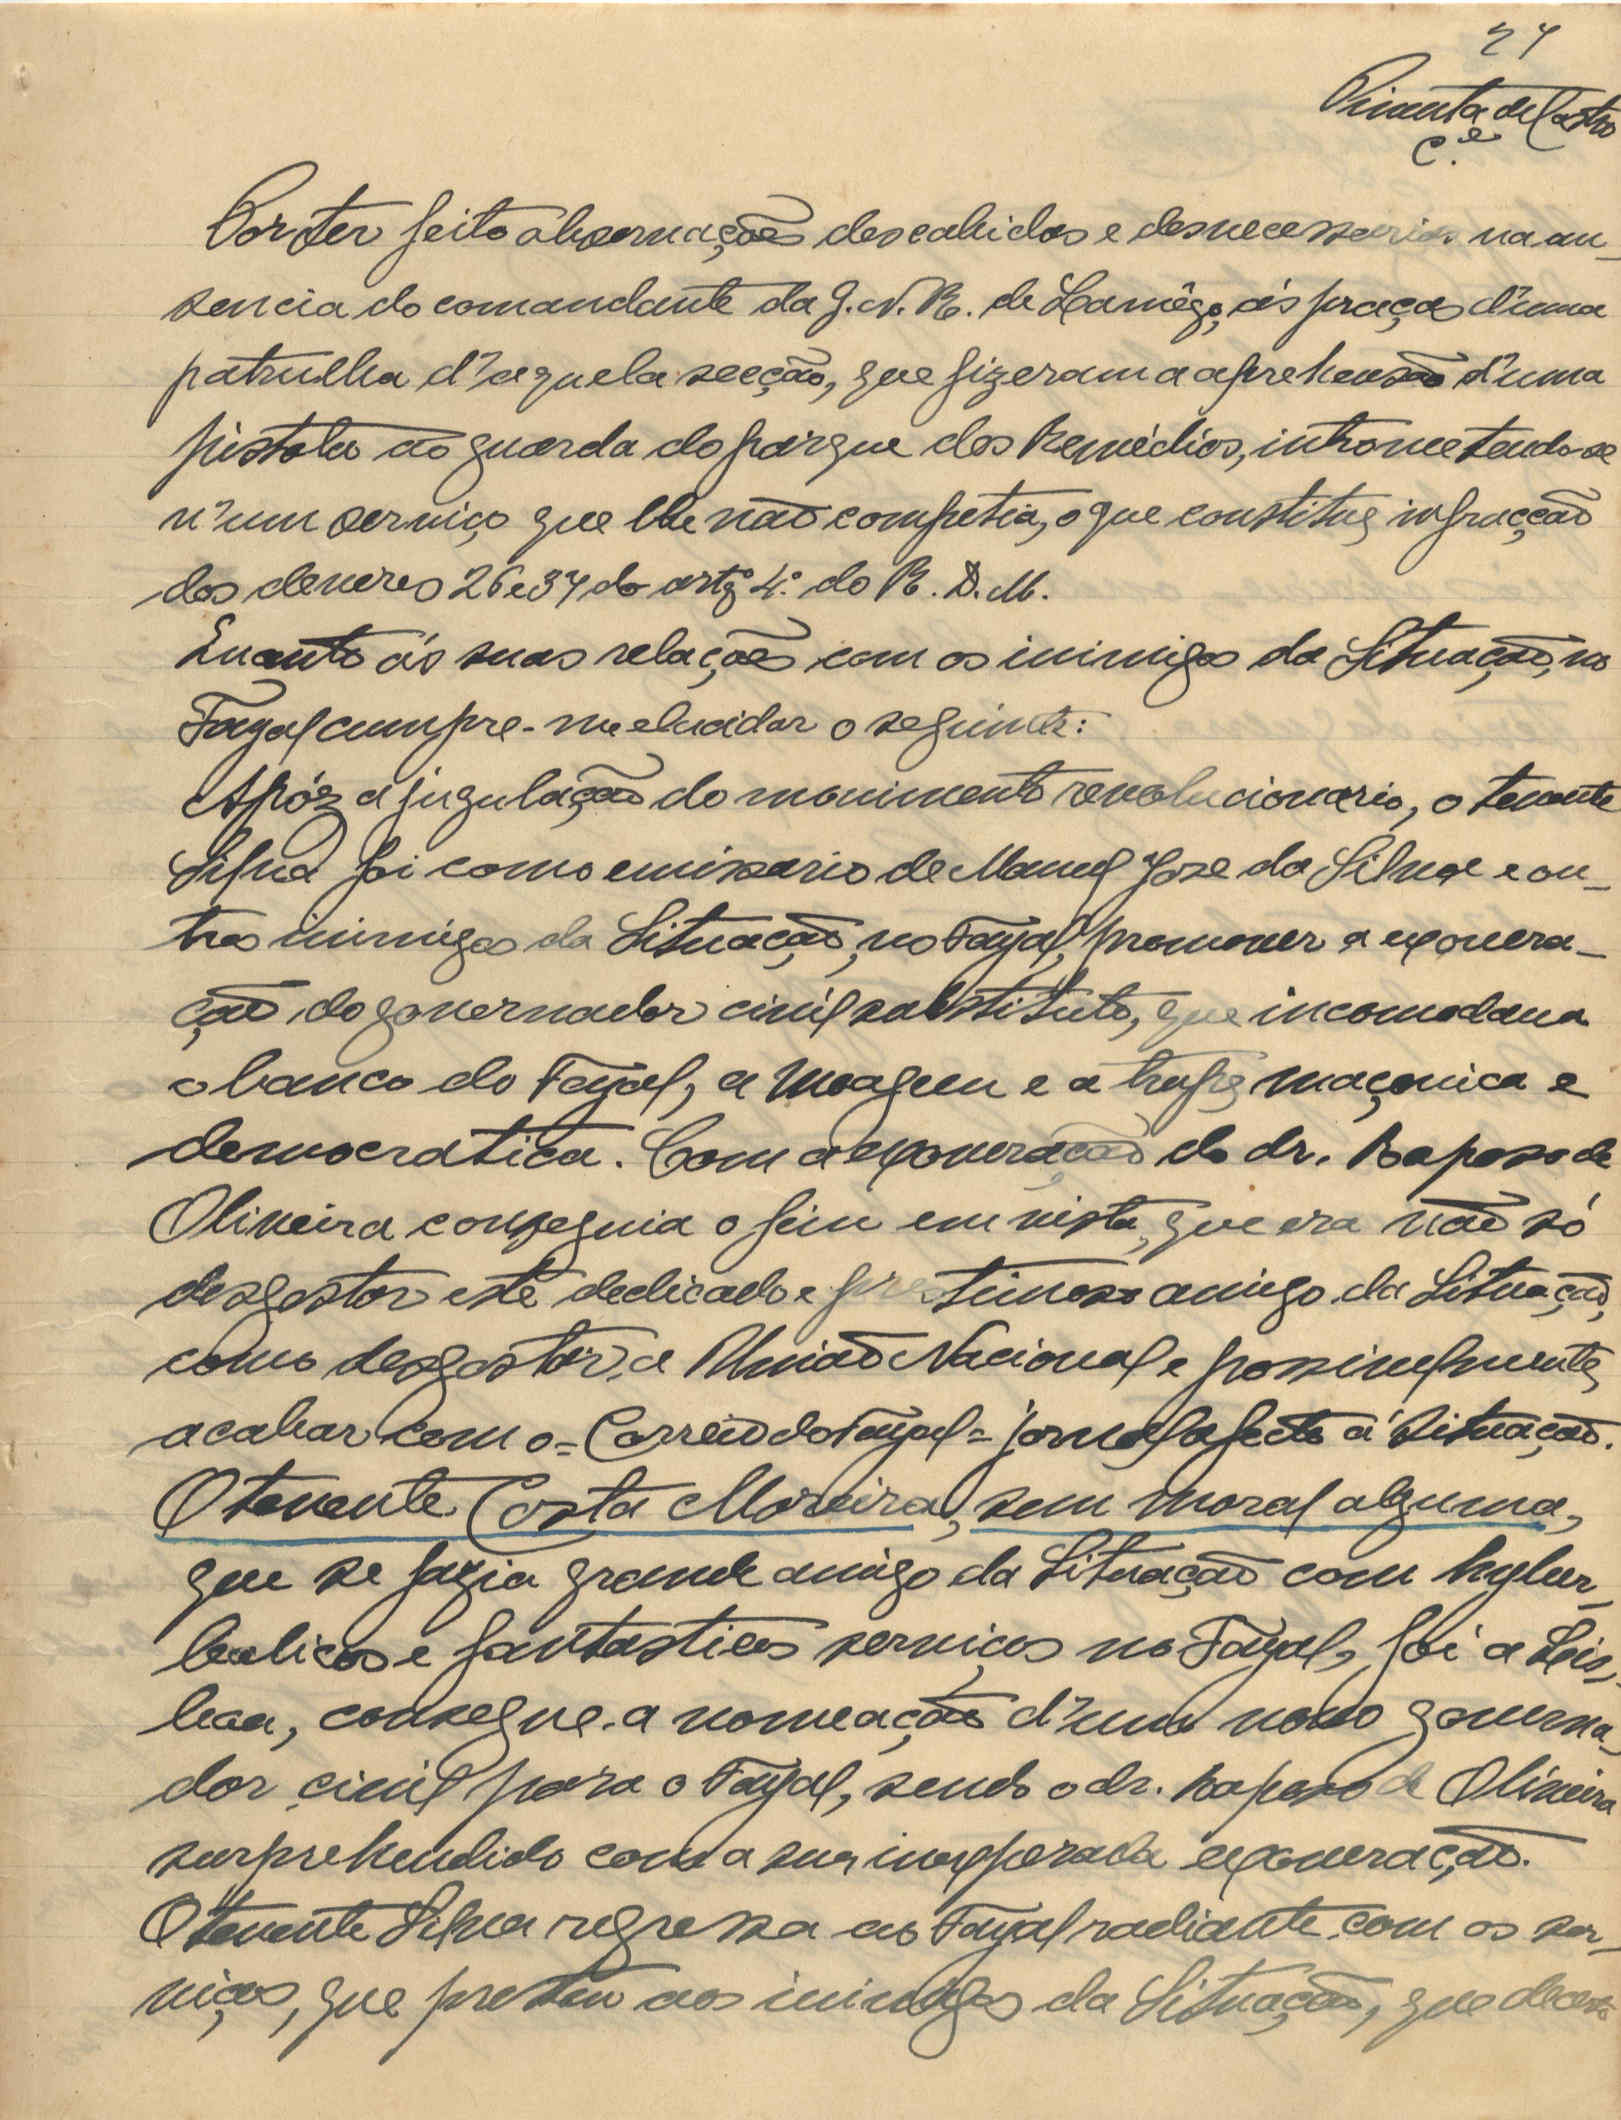 27
Pimenta de Castro
C.el
Por ter feito observações descabidas e desnecessarias na au-
sencia do comandante da G. N. R. de Lamêgo, ás praças d'uma
patrulha d'aquela secção, que fizeram a aprehensão d'uma
pistola ao guarda do parque dos Remédios, intrometendo-se
n'um serviço que lhe não competia, o que constitue infracção
dos deveres 26 e 37 do artº 4.º do R. D. M.
Quanto ás suas relações com os inimigos da Situação, no
Fayal cumpre-me elucidar o seguinte:
Apóz a jugulação do movimento revolucionario, o tenente
Silva foi como emissario de Manuel José da Silva e ou-
tros inimigos da Situação, no Fayal, promover a exonera-
ção do governador civil substituto, que incomodava
o banco do Fayal, a Moagem e a trupe maçonica e
democratica. Com a exoneração do dr. Raposo de
Oliveira conseguia o fim em vista, que era não só
desgostar este dedicado e prestimoso amigo da Situação,
como desgostar a União Nacional e possivelmente,
acabar com o = Correio do Fayal = jornal afecto á Situação.
O tenente Costa Moreira, sem moral alguma,
que se fazia grande amigo da Situação com hyber-
bolicos e fantasticos serviços no Fayal, foi a Lis-
boa, consegue a nomeação d'um novo governa-
dor civil para o Fayal, sendo o dr. Raposo de Oliveira
surprehendido com a sua inesperada exoneração.
O tenente Silva regressa ao Fayal radiante com os ser-
viços, que prestou aos inimigos da Situação, que decerto